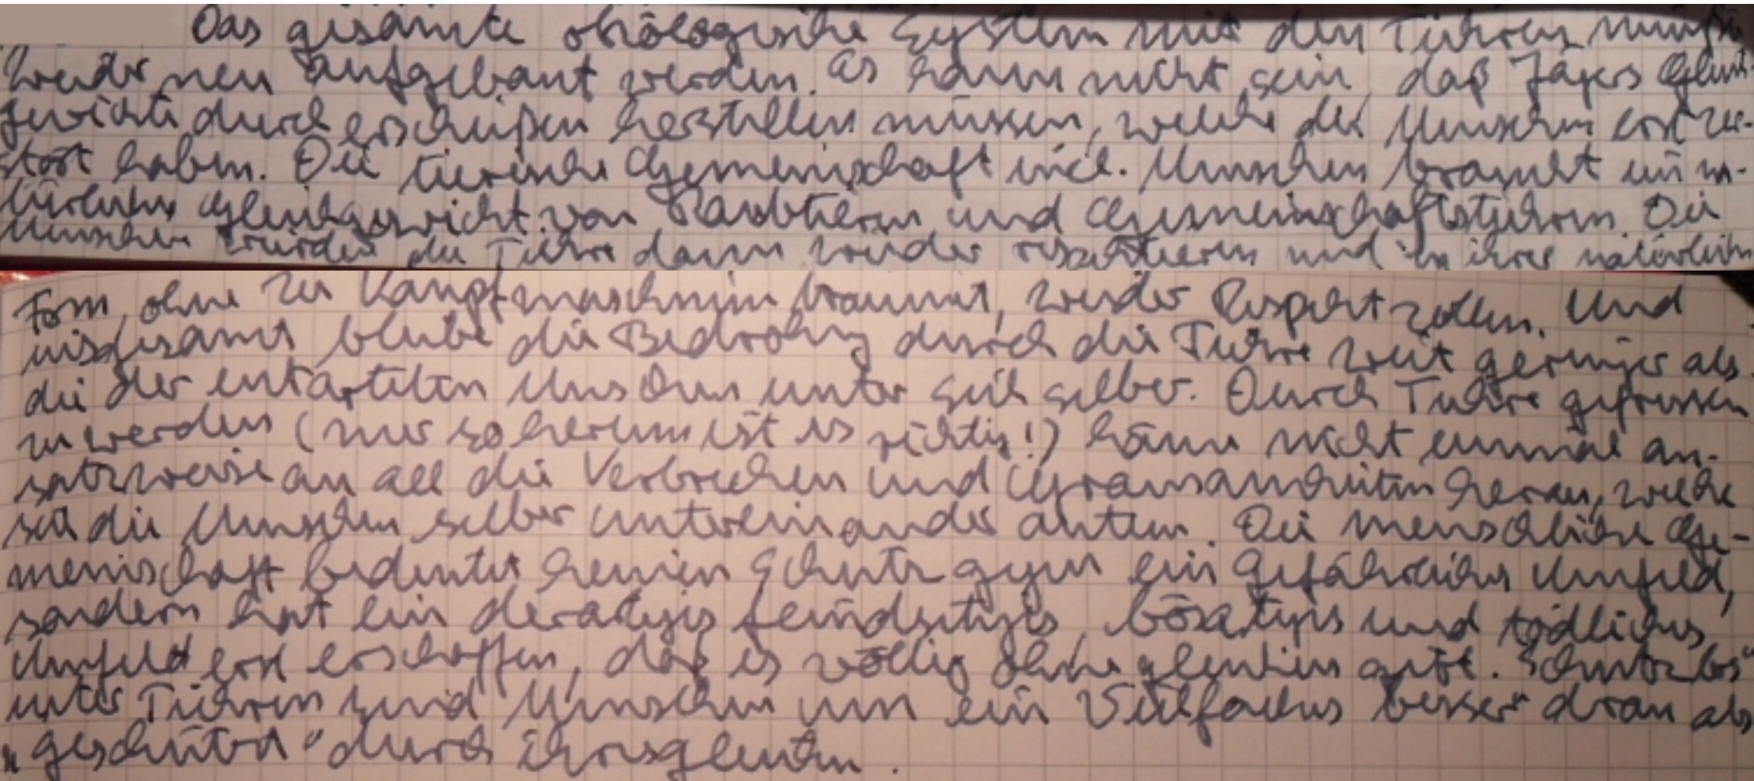 Das gesamte ökologische System mit den Tieren müßte
wieder neu aufgebaut werden. Es kann nicht sein, daß Jägers Gleich-
gewichte durch erschießen herstellen müssen, welche die Menschen erst zer-
stört haben. Die tierische Gemeinschaft incl. Menschen braucht ein na-
türliches Gleichgewicht von Raubtieren und Gemeinschaftstieren. Die
Menschen würden die Tiere dann wieder respektieren und in ihrer natürlichen
Form, ohne zu Kampfmaschinen, wieder Respekt zollen. Und
insgesamt bliebe die Bedrohung durch die Tiere weit geringer als
die der entarteten Menschen unter sich selber. Durch Tiere gefressen
zu werden (nur so herum ist es richtig!) käme nicht einmal an-
satzweise an all die Verbrechen und Grausamkeiten heran, welche
sich die Menschen selber untereinander antun. Die menschliche Ge-
meinschaft bedeutet keinen Schutz gegen ein gefährliches Umfeld,
sondern hat ein derartiges feindseitiges, bösartiges und tödliches
Umfeld erst erschaffen, daß es völlig ohne gleichen gibt. Schutzlos"
unter Tieren sind Menschen um ein Vielfaches besser dran als
"geschützt" durch ihresgleichen.